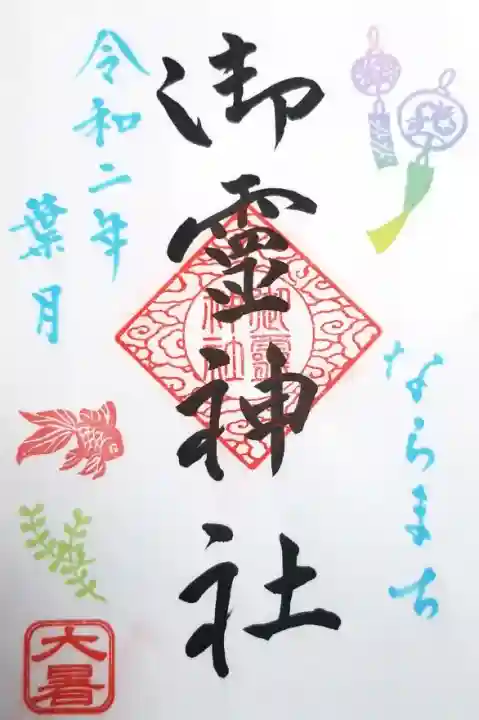 ならまち
御霊神社
御霊
神社
令和二年
葉月
大暑